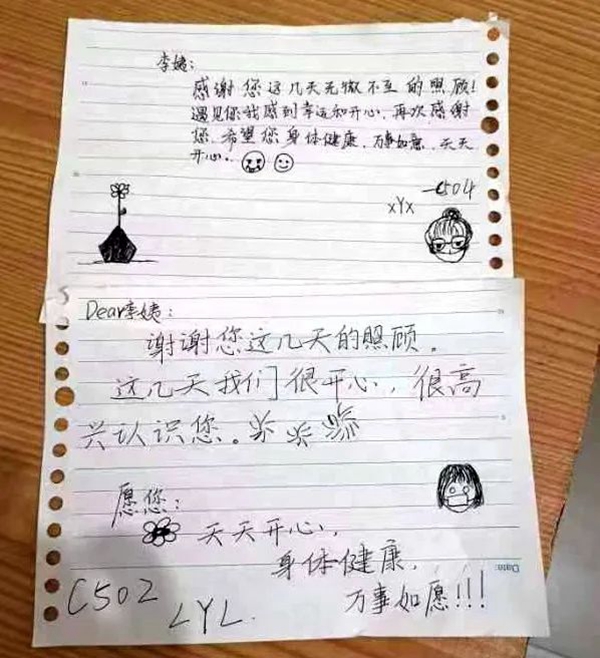 李姨：
感谢您这几天无微不至的照顾！
遇见你我感到幸运和开心，再次感谢
您，希望您身体健康，万事如意，天天
开心。
—C504
xYx
Dear李姨：
谢谢您这几天的照顾。
这几天我们很开心，很高
兴认识您。
愿您：
天天开心，
身体健康，
万事如愿!!!
Date:
C502
LYL.